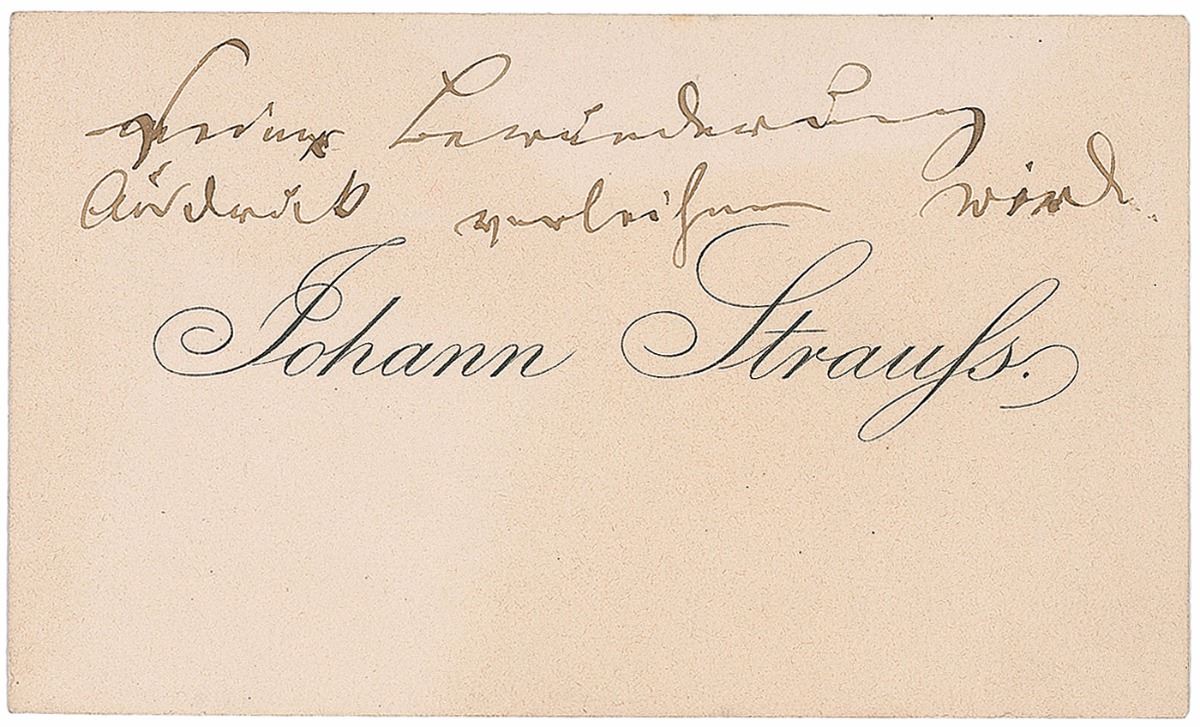 seiner Bewunderung
Ausdruck verleihen wird.
Johann Strauss.